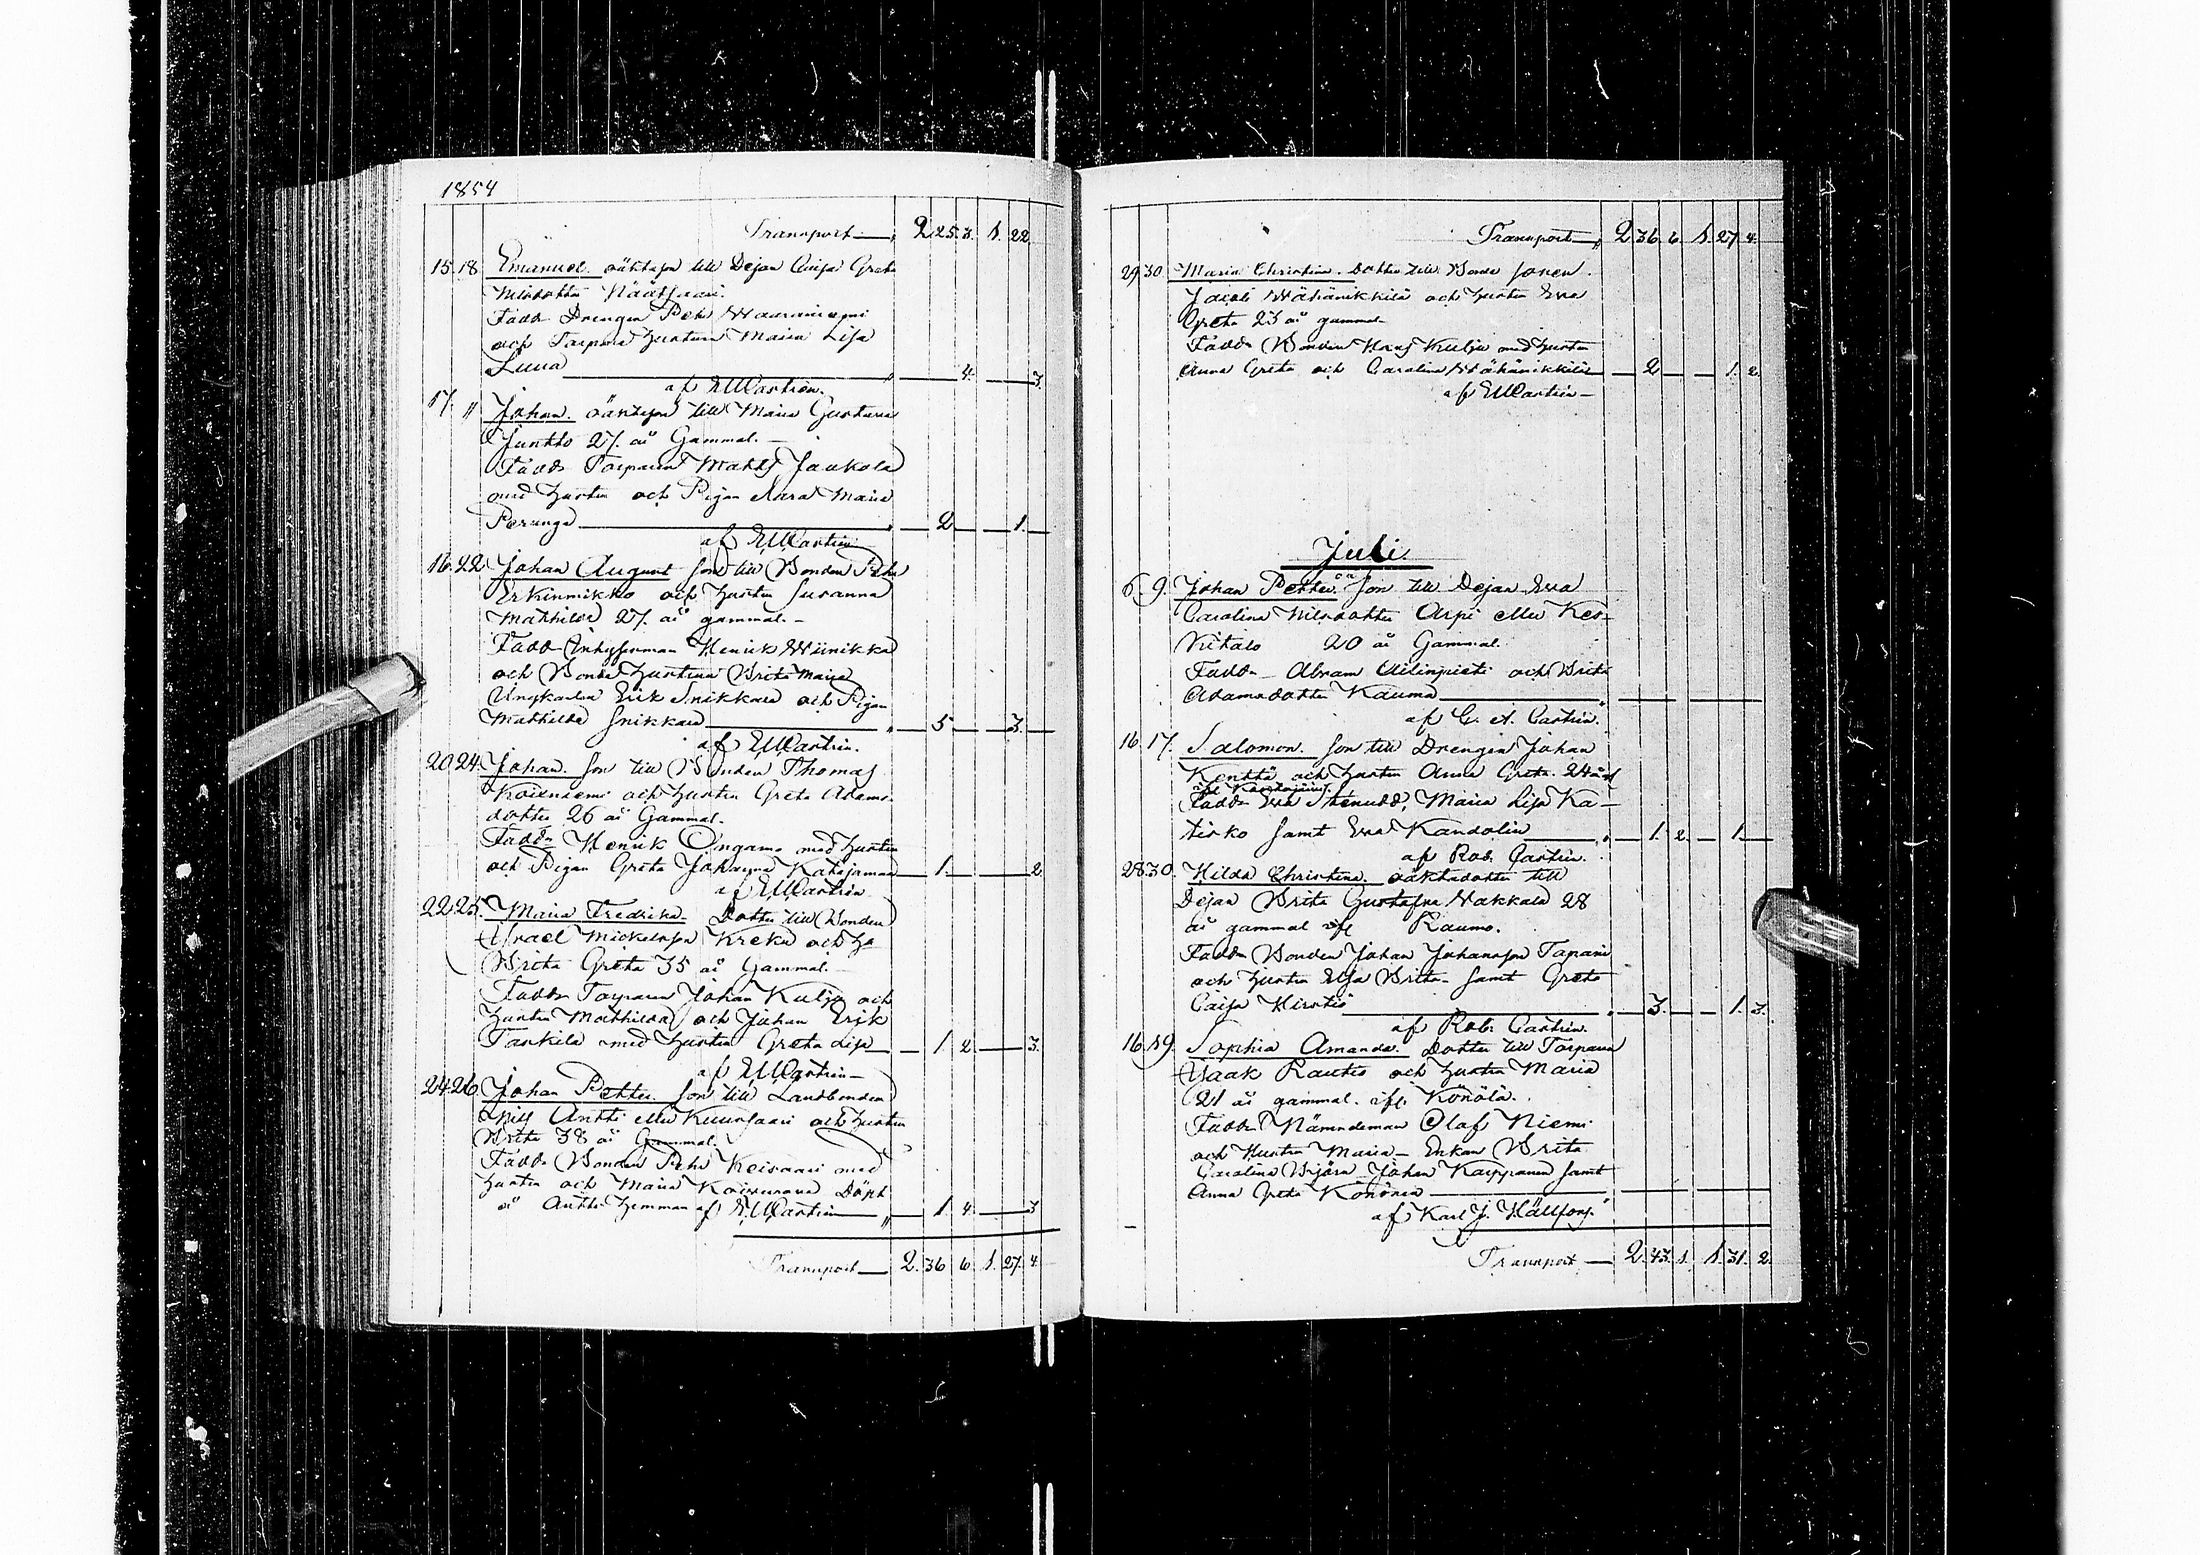 1854
Transport 2. 25. 3. 1. 22.
15. 18. Emanuel. oäkta son till Dejan Caisa Greta
Nilsdotter Näätsaari.
Fadd. Drengen Pehr Wauraniemi
och Torpare hustrun Maria Lisa
Luua 4. 3.
af EWCastrén.
17. " Johan. oäkta son till Maria Gustava
Juntto 27. år Gammal.
Fadd. Torparen Matts Jaukola
med hustru och Pigan Clara Maria
Perunga 2 1.
af EWCastrén
16. 22 Johan August son till Bonden Pehr
Erkinmikko och hustru Susanna
Mathilda 27. år gammal.
Fadd. Inhysesman Henrik Wiinikka
och Bonde hustrun Brita Maria
Ungkarlen Erik Snikkara och Pigan
Mathilda Snikkara 5 3.
af EWCastrén.
20. 24. Johan. son till Bonden Thomas
Koiseniemi och hustru Greta Adams-
dotter 26 år Gammal.
Fadd. Henrik Ongamo med hustru
och Pigan Greta Johanna Katajamaa 1. 2
af EWCastrén
22. 25. Maria Fredrika. Dotter till Bonden
Israel Mickelsson Kreku och hu
Brita Greta 35 år Gammal.
Fadd. Torparen Johan Kulju och
hustru Mathilda och Johan Erik
Tarkila med hustru Greta Lisa 1. 2. 3.
af EWCastrén
24. 26. Johan Petter. son till Landbonden
Nils Antti eller Kuursaari och hustru
Brita 38 år Gammal.
Fadd. Bonden Pehr Keisaari med
hustru och Maria Koissurava Döpt
å Antti hemman af EWCastrén 1. 4. 3
Transport 2. 36 6. 1. 27. 4.
Transport 2. 36. 6. 1. 27. 4.
29. 30 Maria Christina. Dotter till Bonde sonen
Jacob Wähänikkilä och hustru Eva
Greta 23 år gammal
Fadd. Bonden Hans Kulju med hustru
Anna Greta och Carolina Wähänikkilä 2 1. 2.
af EWCastrén
Juli.
6. 9. Johan Petter. son till Dejan Eva
Carolina Nilsdotter Arpi eller Kes-
kitalo 20 år Gammal.
Fadd. Abram Ailinpieti och Brita
Adamsdotter Kauma
af C. A. Castrén.
16. 17. Salomon. son till Drengen Johan
Kenttä och hustru Anna Greta. 24 år
Fadd. Eva Stenudd, Maria Lisa Ka-
tisko samt Eva Kandolin 1. 2. 1.
af Rob. Castrén.
28. 30. Hilda Christina. oäkta dotter till
Dejan Brita Gustafva Hakkala 28
år gammal ifr Kaumo.
Fadd. Bonden Johan Johansson Tapani
och hustru Elsa Brita samt Greta
Caisa Hirstiö 3. 1. 3.
af Rob. Castrén.
16. 19. Sophia Amanda. Dotter till Torparen
Isaak Rautio och hustru Maria
21 år gammal. ifr Könölä.
Fadd. Nämndeman Olof Niemi
och Hustru Maria Enkan Brita
Carolina Björn Johan Karppanen samt
Anna Greta Könönen
af Karl J. Hällfors.
Transport 2. 43. 1. 1. 31. 2.